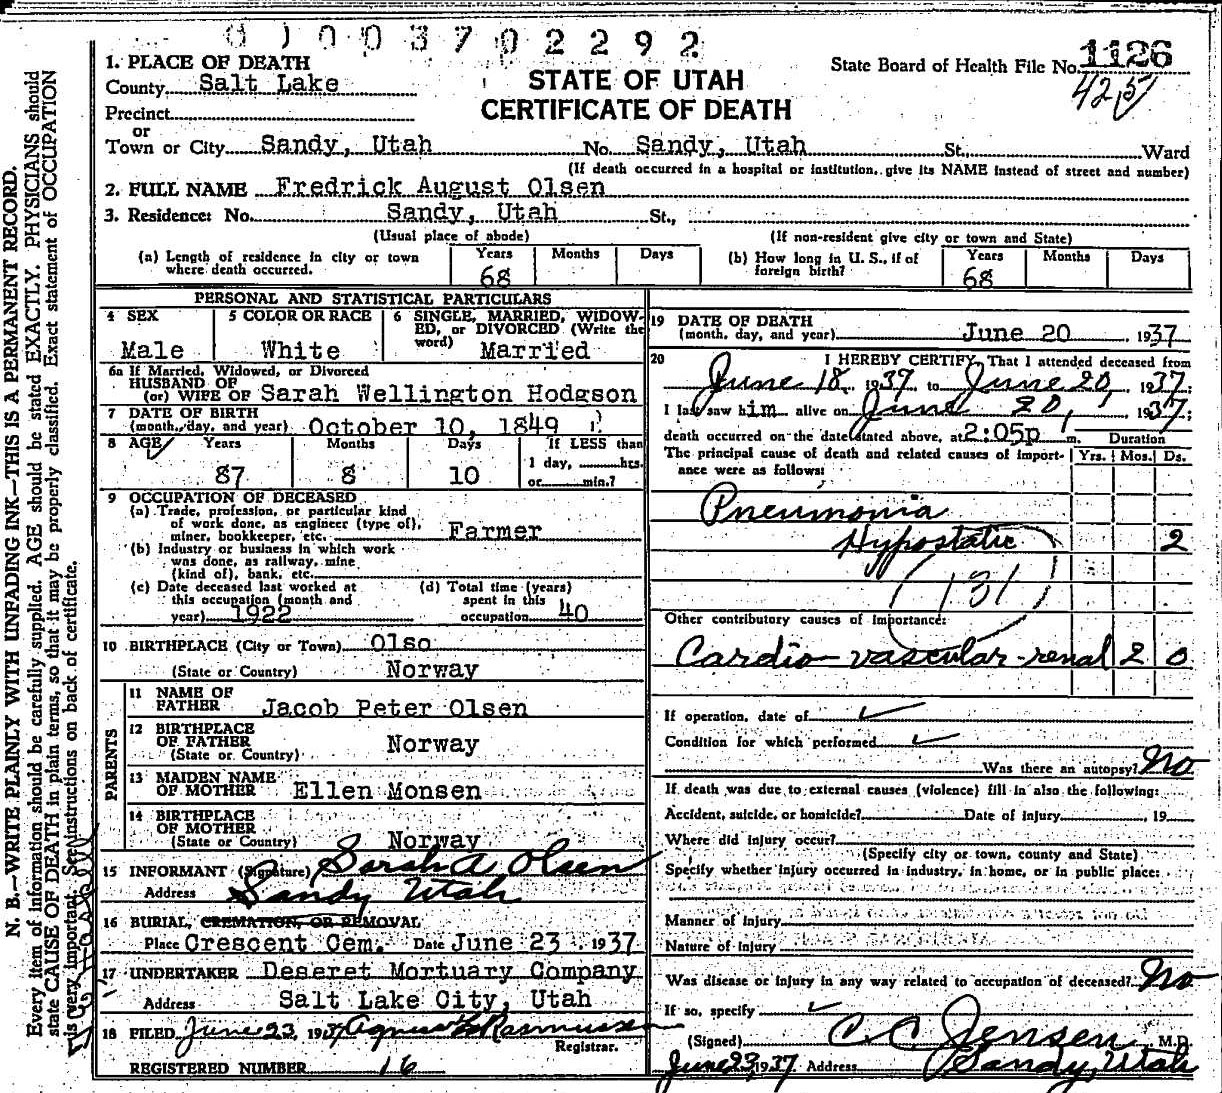 0100370 2292
1. PLACE OF DEATH
County Salt Lake
STATE OF UTAH
CERTIFICATE OF DEATH
State Board of Health File No. 1126
425
Precinct
or
Town or City Sandy, Utah No. Sandy, Utah St. Ward
(If death occurred in a hospital or institution, give its NAME instead of street and number)
2. FULL NAME Fredrick August Olsen
3. Residence: No. Sandy, Utah St.,
(Usual place of abode) (If non-resident give city or town and State)
(a) Length of residence in city or town where death occurred. Years 68 Months Days
(b) How long in U. S., if of foreign birth? Years 68 Months Days
PERSONAL AND STATISTICAL PARTICULARS
4 SEX Male
5 COLOR OR RACE White
6 SINGLE, MARRIED, WIDOW-
ED, or DIVORCED (Write the
word) Married
6a If Married, Widowed, or Divorced
HUSBAND OF
(or) WIFE OF Sarah Wellington Hodgson
7 DATE OF BIRTH
(month, day, and year) October 10, 1849
8 AGE Years Months Days If LESS than
87 8 10 1 day, hrs.
or min.?
9 OCCUPATION OF DECEASED
(a) Trade, profession, or particular kind
of work done, as engineer (type of),
miner, bookkeeper, etc. Farmer
(b) Industry or business in which work
was done, as railway, mine
(kind of), bank, etc.
(c) Date deceased last worked at
this occupation (month and
year) 1922
(d) Total time (years)
spent in this
occupation 40
10 BIRTHPLACE (City or Town) Olso
(State or Country) Norway
PARENTS
11 NAME OF
FATHER Jacob Peter Olsen
12 BIRTHPLACE
OF FATHER Norway
(State or Country)
13 MAIDEN NAME
OF MOTHER Ellen Monsen
14 BIRTHPLACE
OF MOTHER
(State or Country) Norway
15 INFORMANT (Signature) Sarah A Olsen
Address Sandy Utah
16 BURIAL, CREMATION, OR REMOVAL
Place Crescent Cem. Date June 23, 1937
17 UNDERTAKER Deseret Mortuary Company
Address Salt Lake City, Utah
18 FILED June 23, 1937 Agnes Rasmussen
Registrar.
REGISTERED NUMBER 16
19 DATE OF DEATH
(month, day, and year) June 20, 1937
20 I HEREBY CERTIFY, That I attended deceased from
June 18, 1937 to June 20, 1937;
I last saw him alive on June 20, 1937;
death occurred on the date stated above, at 2:05p m. Duration
The principal cause of death and related causes of import- Yrs. Mos. Ds.
ance were as follows:
Pneumonia
Hypostatic 2
(131)
Other contributory causes of importance:
Cardio-vascular-renal 2 0
If operation, date of
Condition for which performed
Was there an autopsy? No
If death was due to external causes (violence) fill in also the following:
Accident, suicide, or homicide? Date of Injury , 19
Where did injury occur?
(Specify city or town, county and State)
Specify whether injury occurred in industry, in home, or in public place:
Manner of Injury
Nature of Injury
Was disease or injury in any way related to occupation of deceased? No
If so, specify
(Signed) C. C. Jensen M.D.
June 23, 1937 Address Sandy, Utah
N. B.—WRITE PLAINLY WITH UNFADING INK—THIS IS A PERMANENT RECORD.
Every item of information should be carefully supplied. AGE should be stated EXACTLY. PHYSICIANS should
state CAUSE OF DEATH in plain terms, so that it may be properly classified. Exact statement of OCCUPATION
is very important. See instructions on back of certificate.